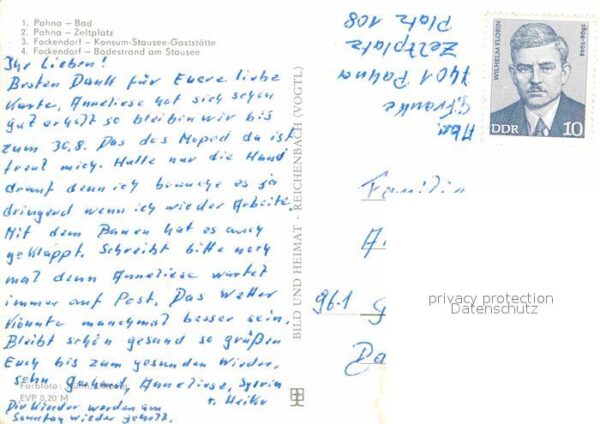 1. Pahna – Bad
2. Pahna – Zeltplatz
3. Fockendorf – Konsum-Stausee-Gaststätte
4. Fockendorf – Badestrand am Stausee
Ihr Lieben!
Besten Dank für Euere liebe
Karte, Anneliese hat sich schon
gut erholt so bleiben wir bis
zum 30.8. Das das Moped da ist
freut mich. Halte nur die Hand
drauf denn ich brauche es ja
dringend wenn ich wieder Arbeite.
Mit dem Bauen hat es auch
geklappt. Schreibt bitte noch
mal denn Anneliese wartet
immer auf Post. Das Wetter
könnte manchmal besser sein.
Bleibt schön gesund so grüßen
Euch bis zum gesunden Wieder,
sehn Gerhard, Anneliese, Sylvia
u. Heike
Farbfoto:
EVP 0,20 M
Die Kinder werden am
Sonntag wieder geholt.
BILD UND HEIMAT · REICHENBACH (VOGTL)
Abs.
G. Franke
7401 Pahna
Zeltplatz
Platz 108
WILHELM FLORIN
1894-1944
DDR 10
Familie
A
961 G
Da
privacy protection
Datenschutz